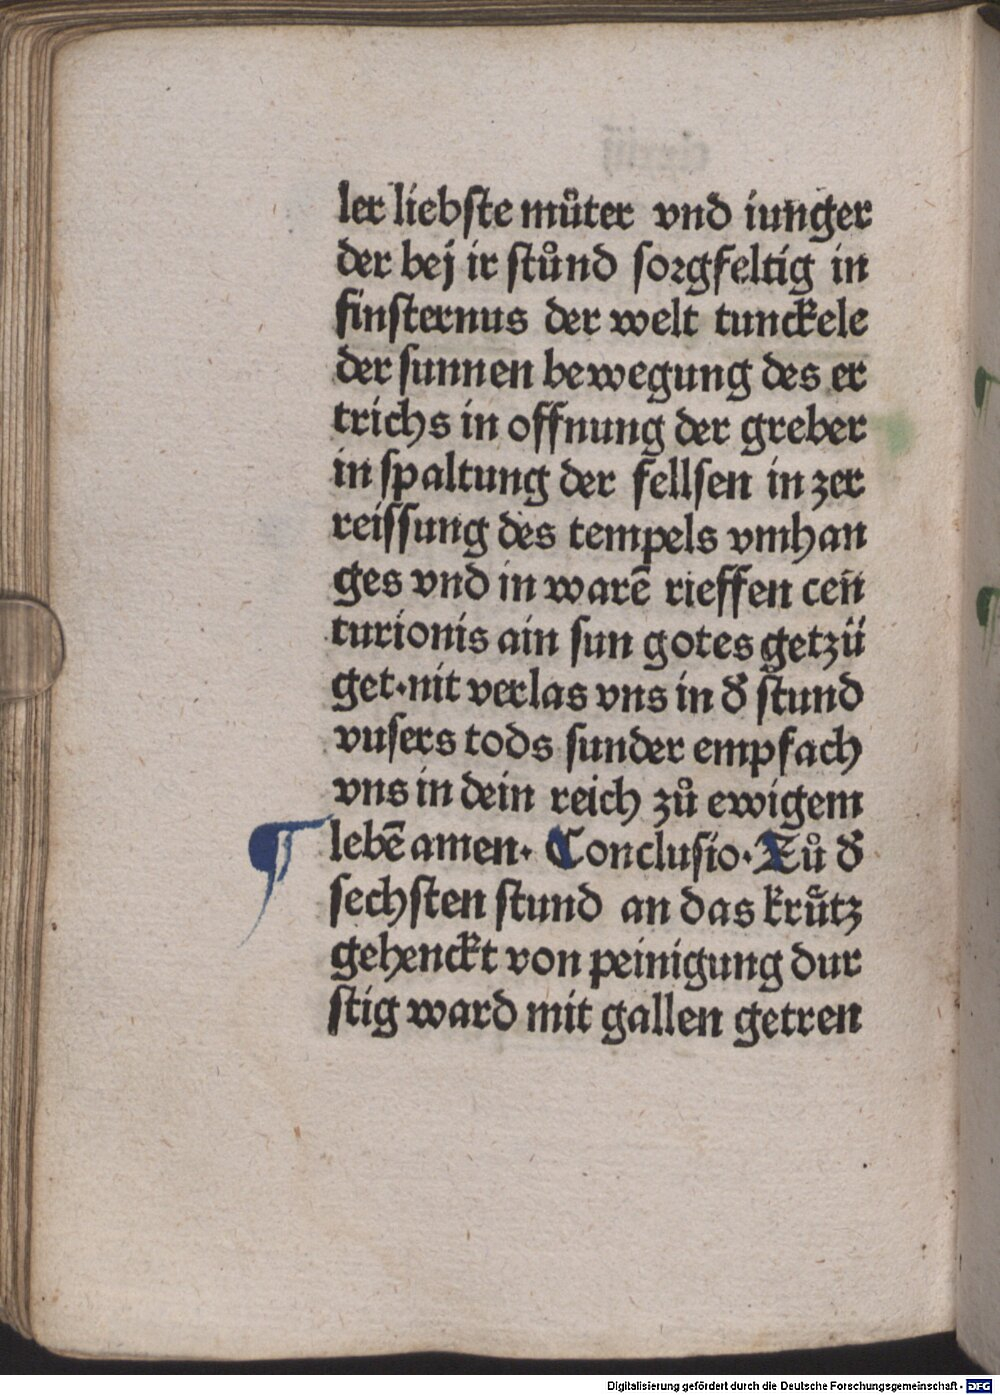 ler liebſte můter vnd iunger
der bej ir ſtůnd ſorgfeltig in
finſternus der welt tunckele
der ſunnen bewegung des er
trichs in offnung der greber
in ſpaltung der fellſen in zer
reiſſung des tempels vmhan
ges vnd in warē rieffen cen̄
turionis ain ſun gotes getzü
get·nit verlas vns in đ ſtund
vuſers tods ſunder empfach
vns in dein reich zů ewigem
lebē amen· Concluſio· Zů đ
ſechſten ſtund an das krütz
gehenckt von peinigung dur
ſtig ward mit gallen getren
Digitalisierung gefördert durch die Deutsche Forschungsgemeinschaft - DFG